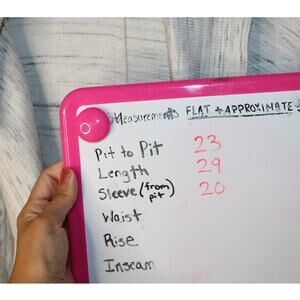 Measurements FLAT + APPROXIMATE
Pit to Pit 23
Length 29
Sleeve (from pit) 20
Waist
Rise
Inseam